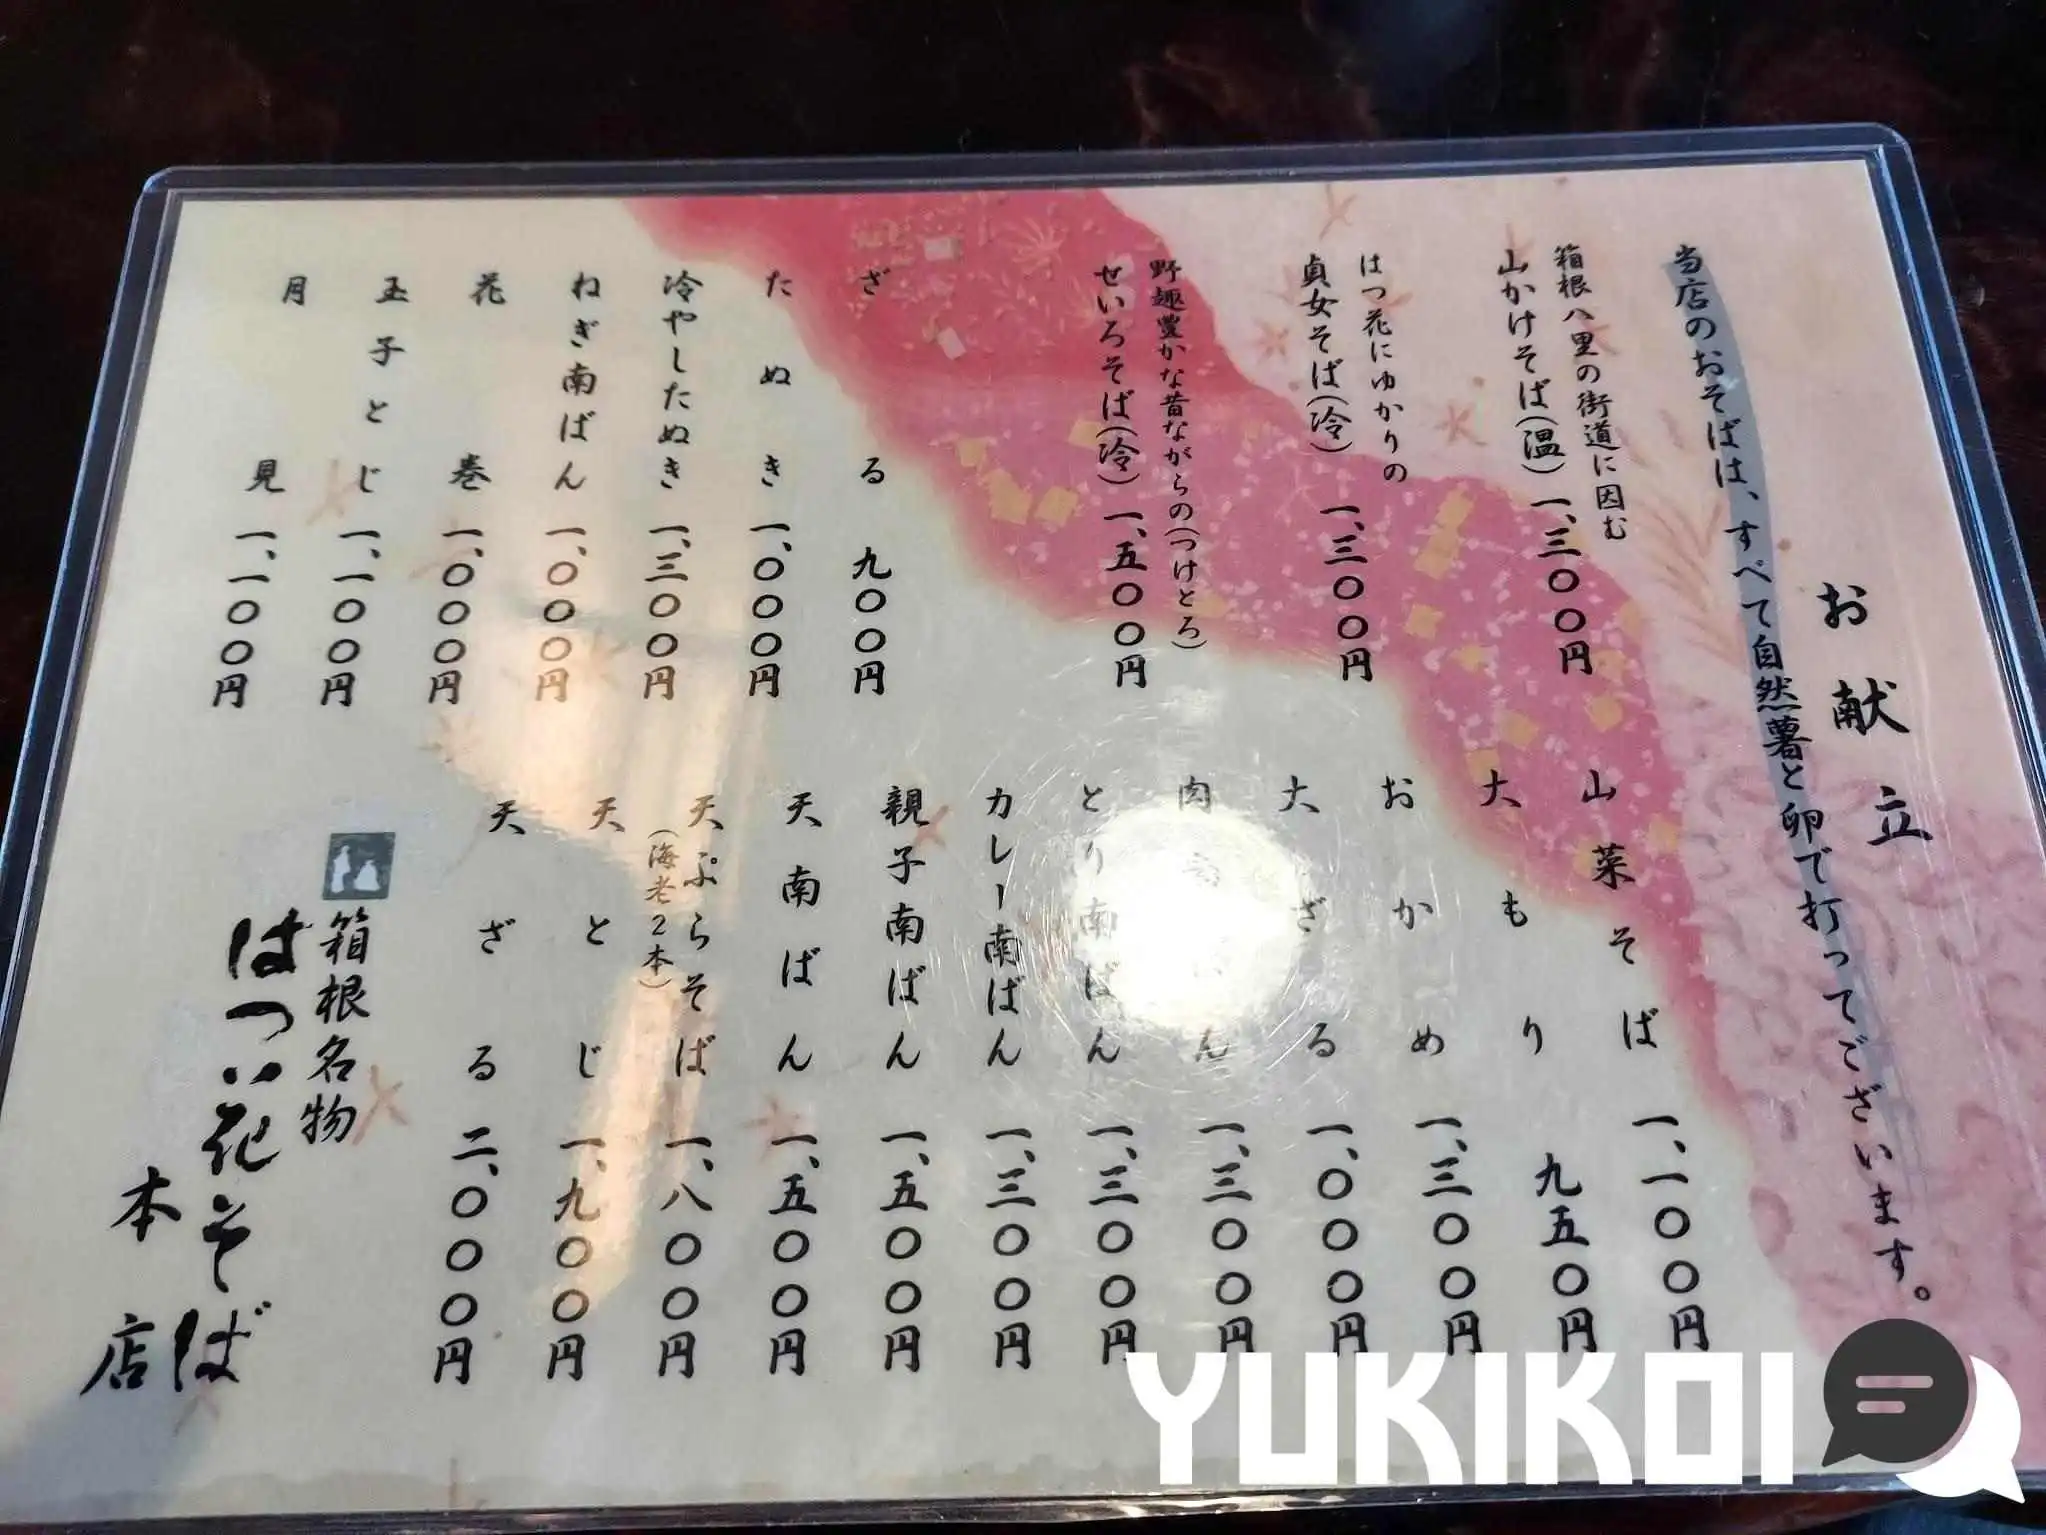 お献立
当店のおそばは、すべて自然薯と卵で打ってございます。
箱根八里の街道に因む
山かけそば(温) 一、三〇〇円
はつ花にゆかりの
貞女そば(冷) 一、三〇〇円
野趣豊かな昔ながらの(つけとろ)
せいろそば(冷) 一、五〇〇円
ざる 九〇〇円
たぬき 一、〇〇〇円
冷やしたぬき 一、三〇〇円
ねぎ南ばん 一、〇〇〇円
花巻 一、〇〇〇円
玉子とじ 一、一〇〇円
月見 一、一〇〇円
山菜そば 一、一〇〇円
大もり 九五〇円
おかめ 一、三〇〇円
大ざる 一、〇〇〇円
肉南ばん 一、三〇〇円
とり南ばん 一、三〇〇円
カレー南ばん 一、三〇〇円
親子南ばん 一、五〇〇円
天南ばん 一、五〇〇円
天ぷらそば 一、八〇〇円
(海老2本)
天とじ 一、九〇〇円
天ざる 二、〇〇〇円
箱根名物
はつ花そば
本店
YUKIKOI